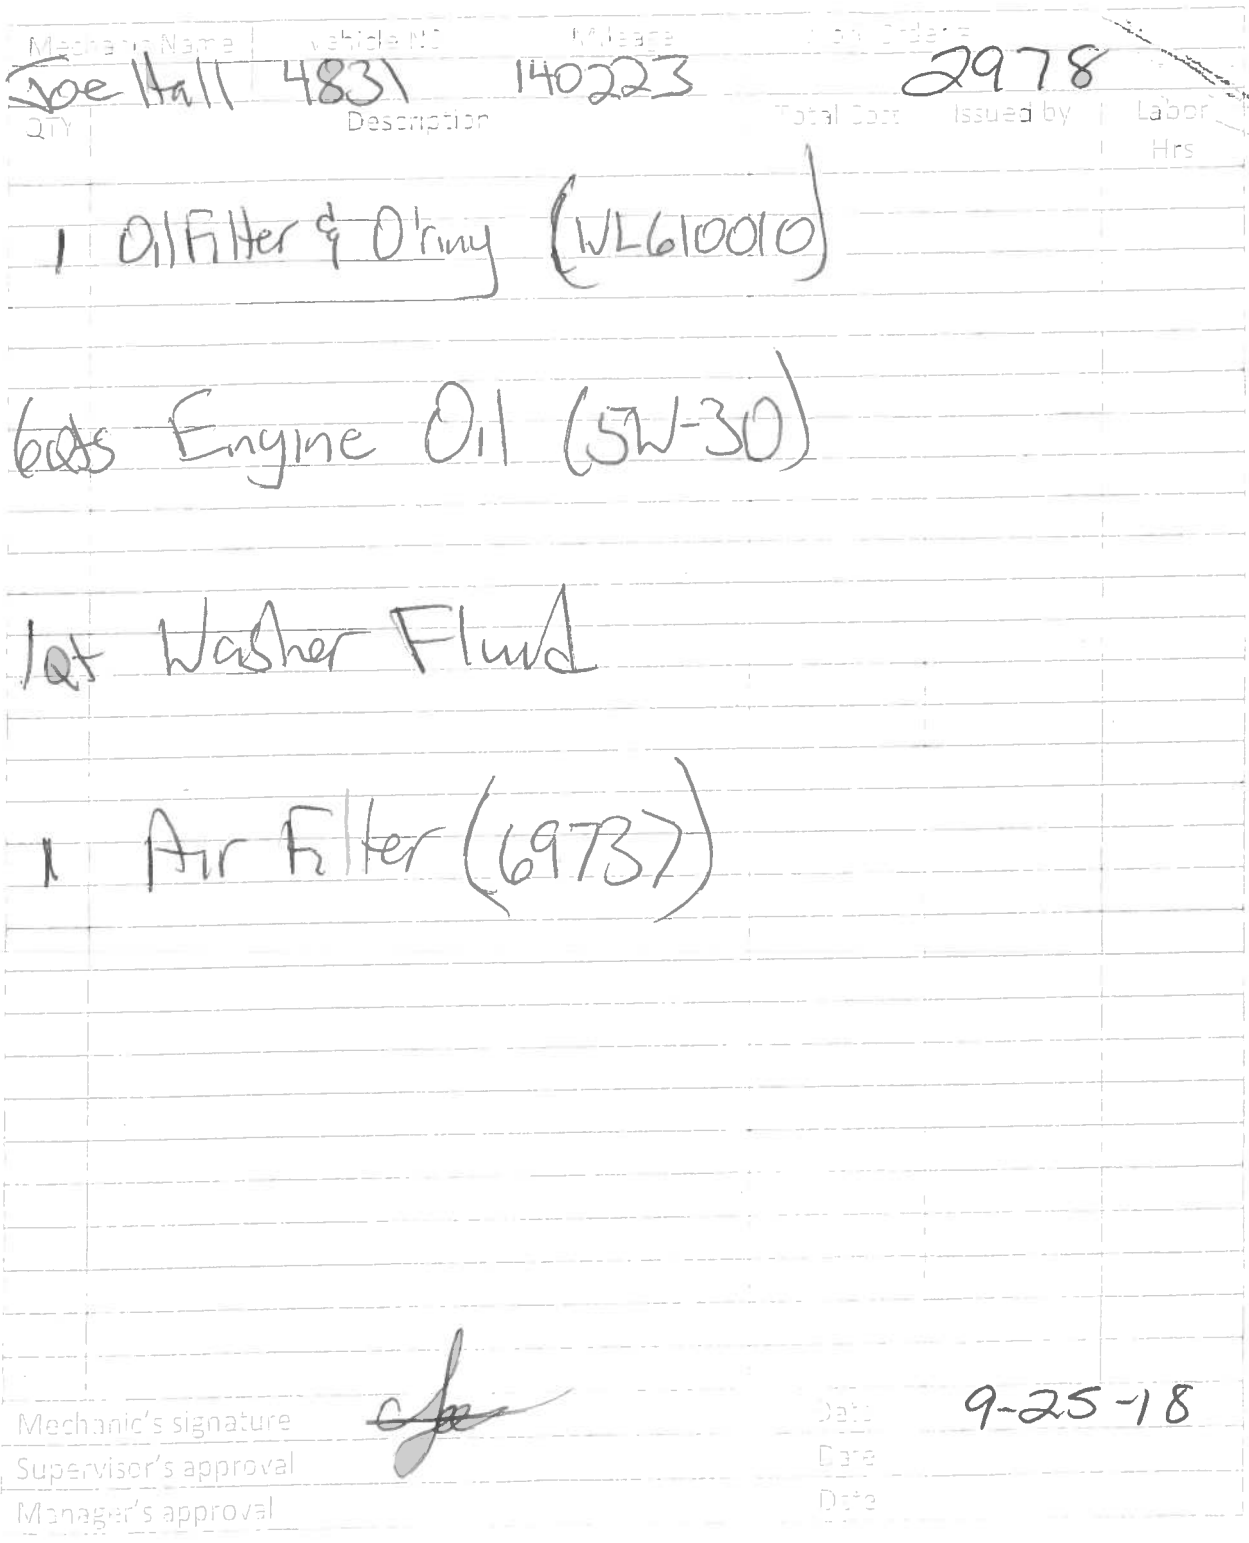 Mechanic Name Vehicle No Mileage Work Order#
Joe Hall 4831 140223 2978
QTY Description Total Cost Issued by Labor
Hrs
1 Oil Filter & O'ring (WL610010)
6qts Engine Oil (5W-30)
1qt Washer Fluid
1 Air Filter (69737)
Mechanic's signature Joe Date 9-25-18
Supervisor's approval Date
Manager's approval Date